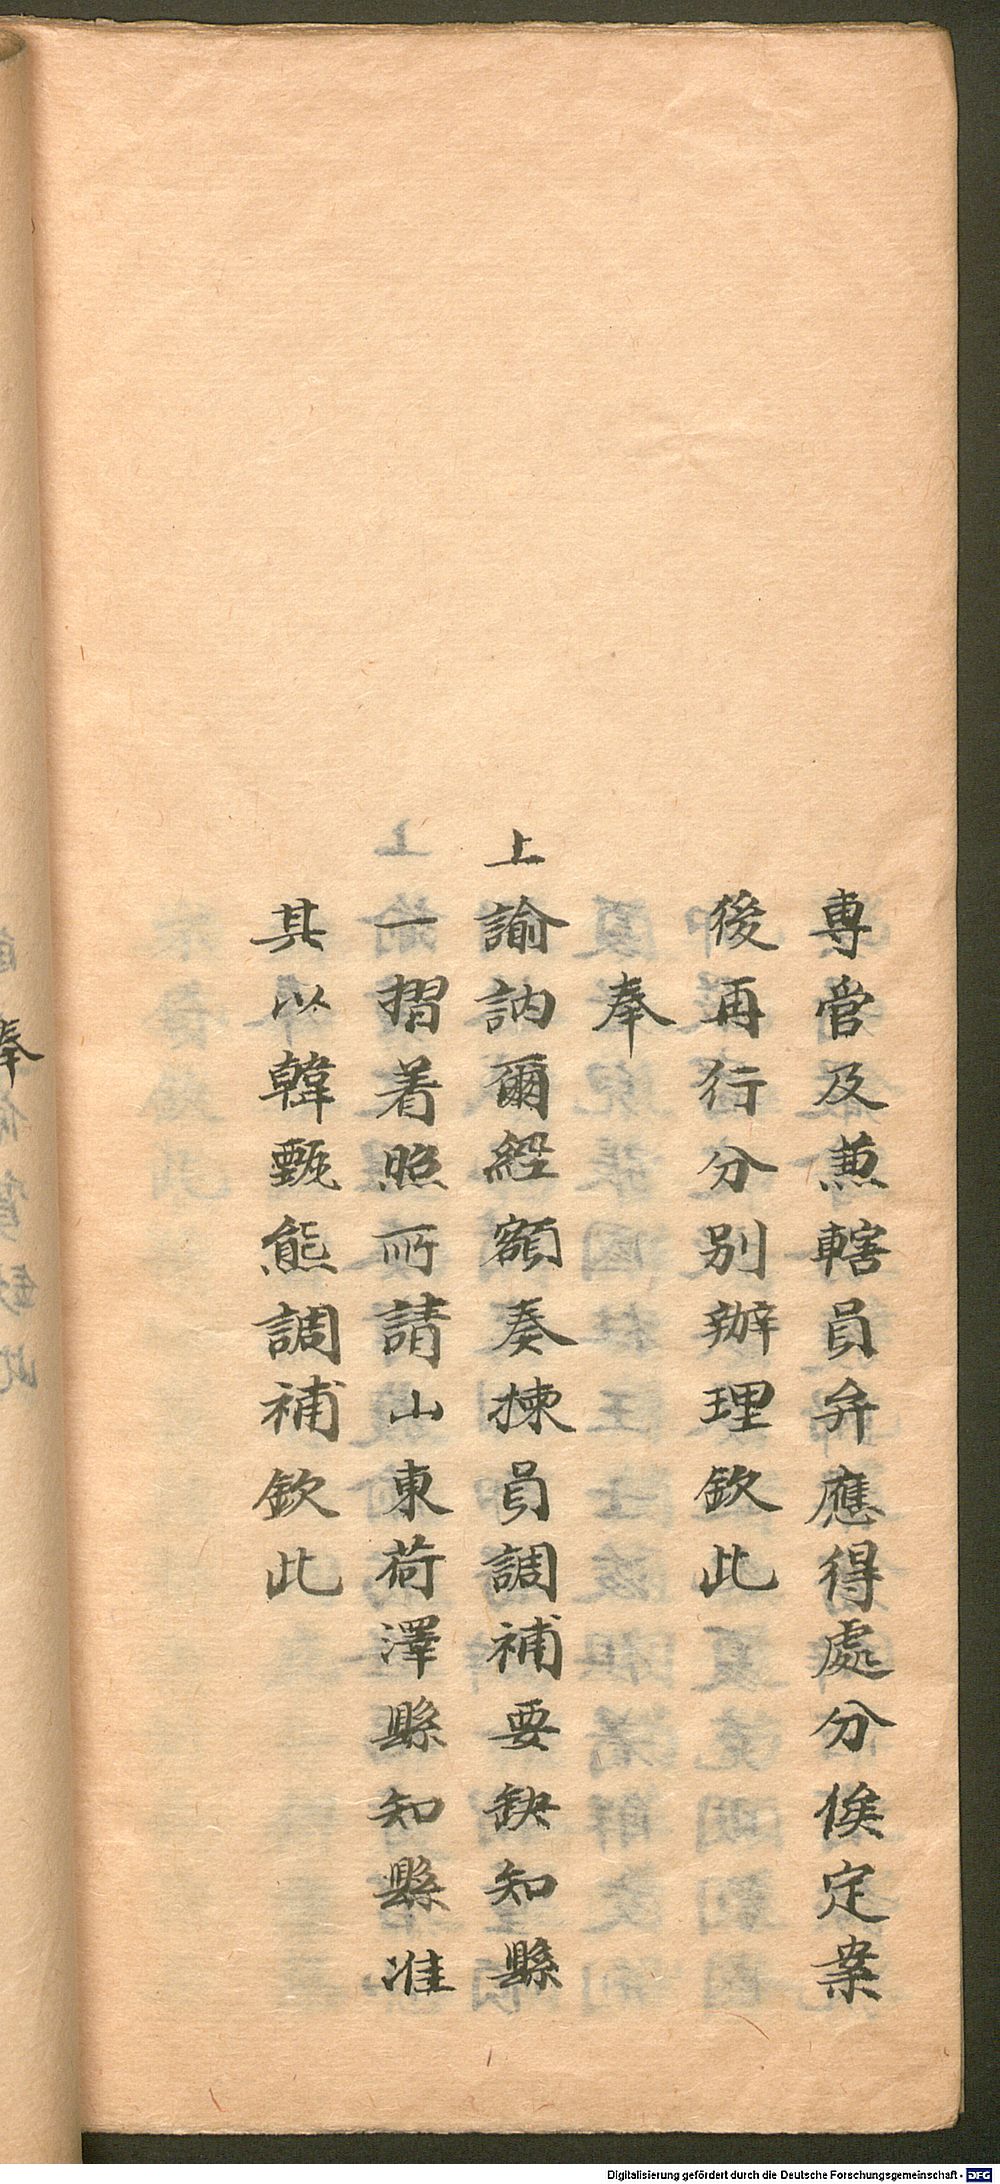 專管及兼轄員弁應得處分俟定案
後再行分别辦理欽此
奉
上諭訥爾經額奏揀員調補要缺知縣
一摺着照所請山東荷澤縣知縣准
其以韓甄熊調補欽此
奉
Digitalisierung gefördert durch die Deutsche Forschungsgemeinschaft - DFG